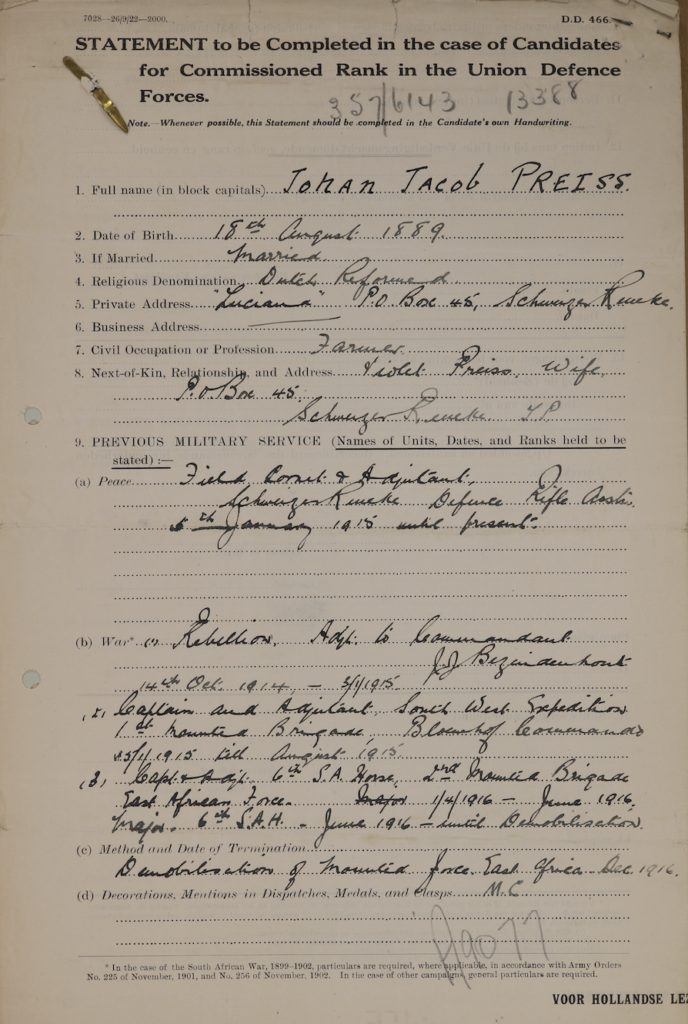 7028—26/9/22—2000.
D.D. 466
STATEMENT to be Completed in the case of Candidates
for Commissioned Rank in the Union Defence
Forces.
357/6143 13388
Note.—Whenever possible, this Statement should be completed in the Candidate's own Handwriting.
1. Full name (in block capitals) JOHAN JACOB PREISS.
2. Date of Birth 18th August 1889.
3. If Married Married.
4. Religious Denomination Dutch Reformed.
5. Private Address "Luciana" P.O Box 45, Schweizer Reneke.
6. Business Address
7. Civil Occupation or Profession Farmer.
8. Next-of-Kin, Relationship, and Address Violet Preiss, Wife,
P.O. Box 45,
Schweizer Reneke T.P.
9. PREVIOUS MILITARY SERVICE (Names of Units, Dates, and Ranks held to be
stated) :—
(a) Peace Field Cornet & Adjutant,
Schweizer Reneke Defence Rifle Assn.
5th January 1915 until present.
(b) War* (1) Rebellion. Adjt. to Commandant
J.J. Bezuidenhout
14th Oct. 1914, – 3/1/1915.
(2) Captain and Adjutant, South West Expedition
1st Mounted Bringade, Bloemhof Commando
/1/1915 till August 1915
(3) Capt & Adjt. 6th S.A. Horse, 2nd Mounted Brigade
East African Force. Major 1/4/1916 – June 1916,
Major. 6th S.A.H. – June 1916 – until Demobilisation
(c) Method and Date of Termination
Demobilisation of Mounted force, East Africa Dec 1916.
(d) Decorations, Mentions in Dispatches, Medals, and Clasps M.C
* In the case of the South African War, 1899-1902, particulars are required, where applicable, in accordance with Army Orders
No. 225 of November, 1901, and No. 256 of November, 1902. In the case of other campaigns, general particulars are required.
VOOR HOLLANDSE LE